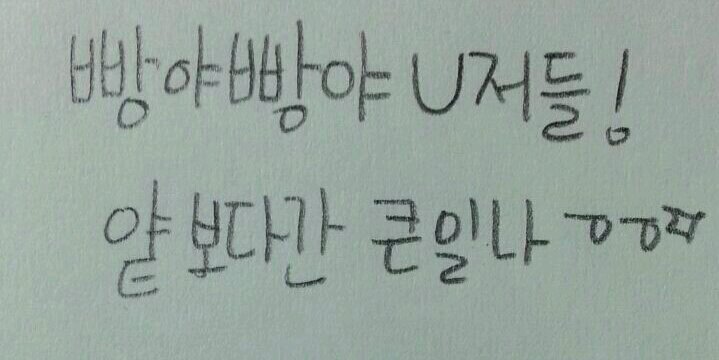 빵야빵야 U저들!
얕보다간 큰일나 ㅇㅇㅈ